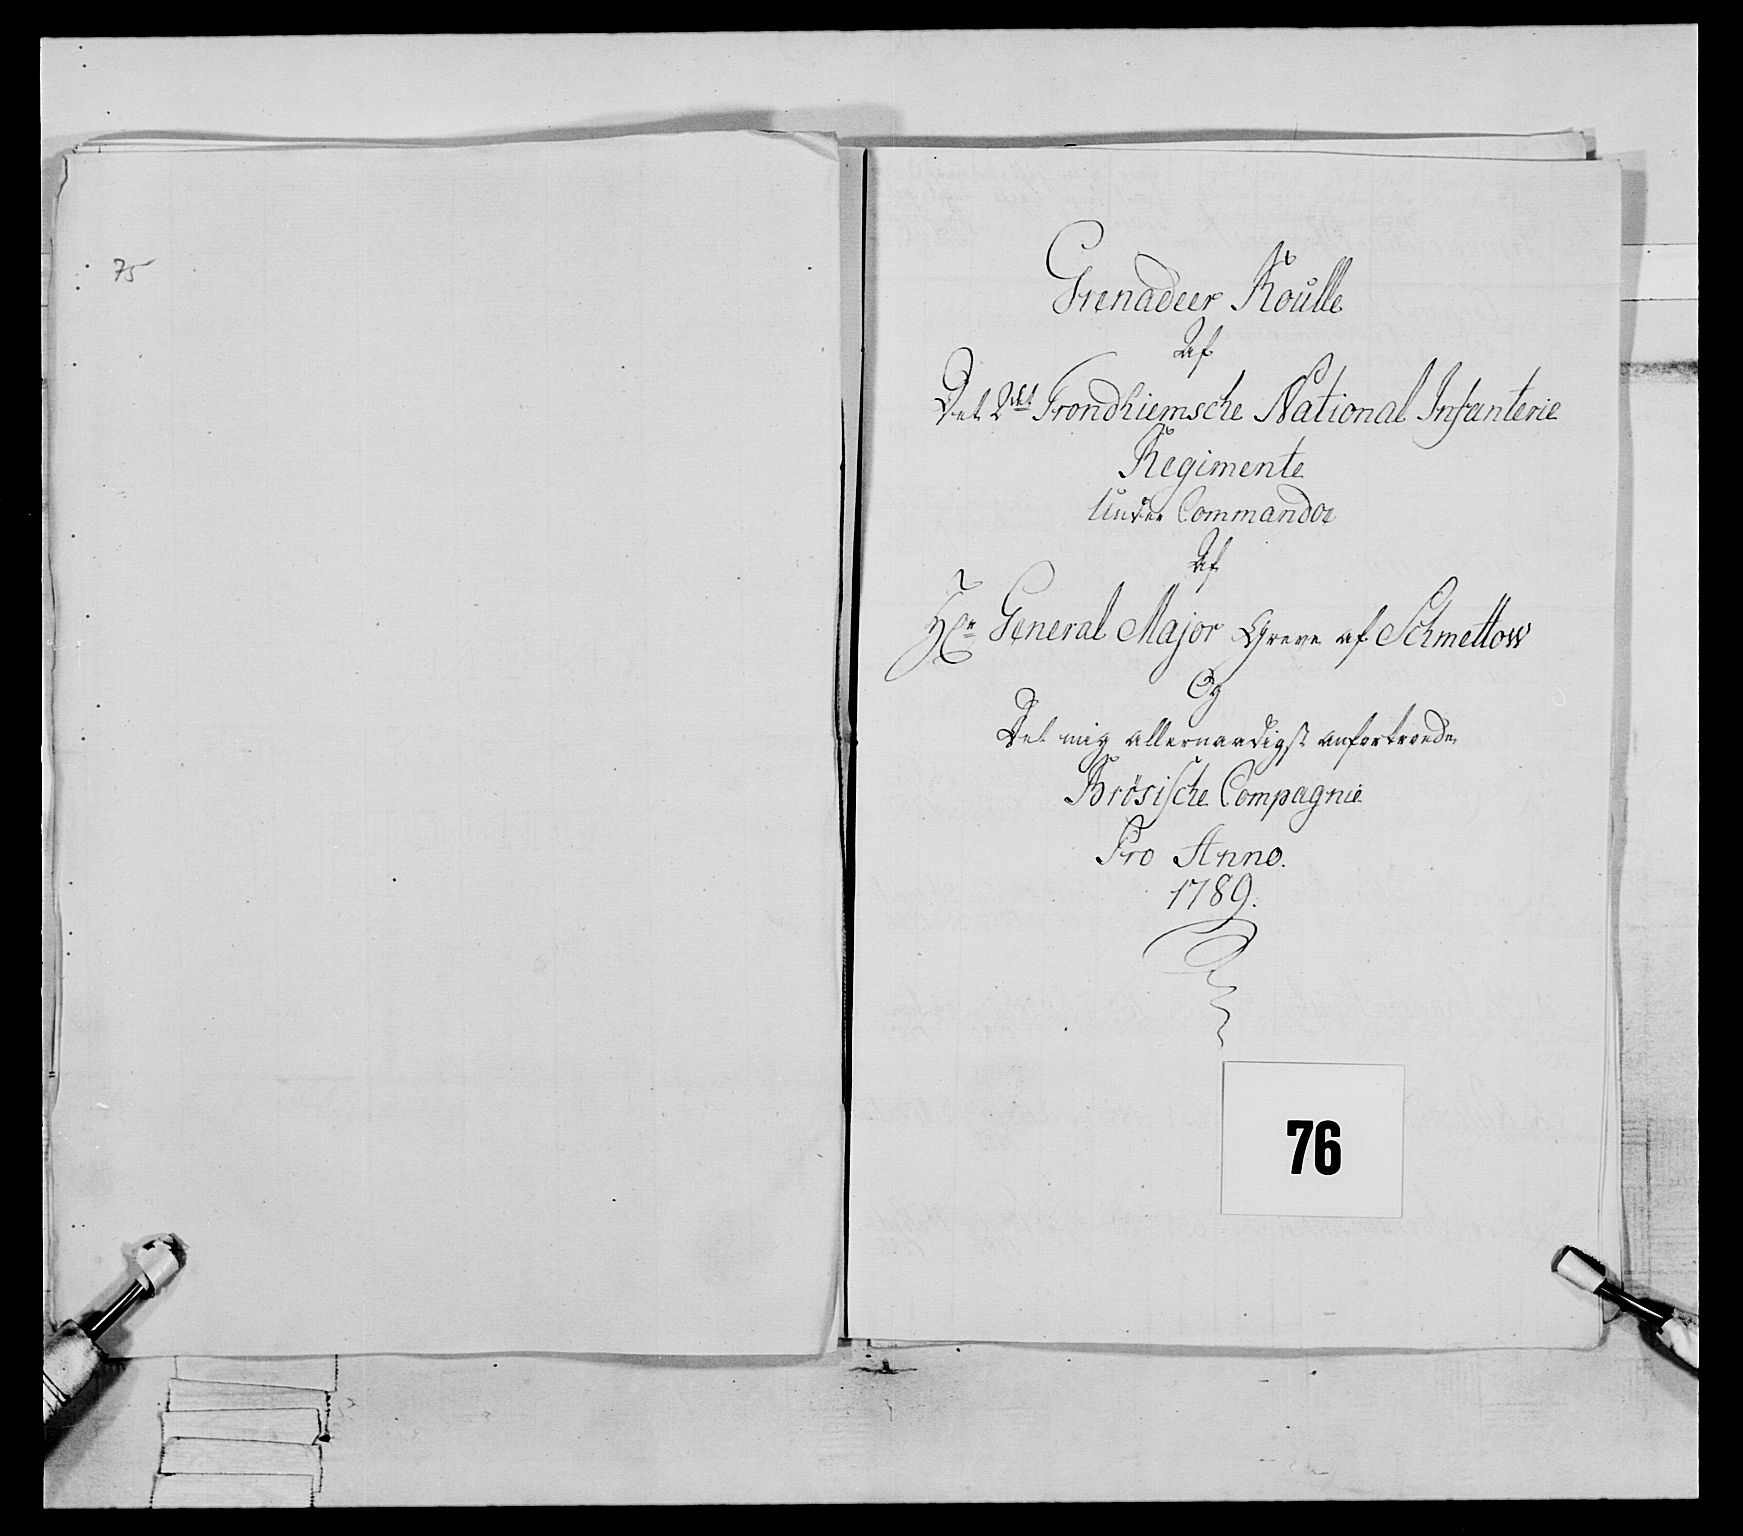 75
Grenadeer Roulle
Af
Det 2det Trondhiemsche National Infanterie
Regimente
Under Commandoe
Af
Hr General Major Greve af Schmettow
Og
Det mig allernaadigst anfortroede
Brösische Compagnie
Pro Anno.
1789.
76